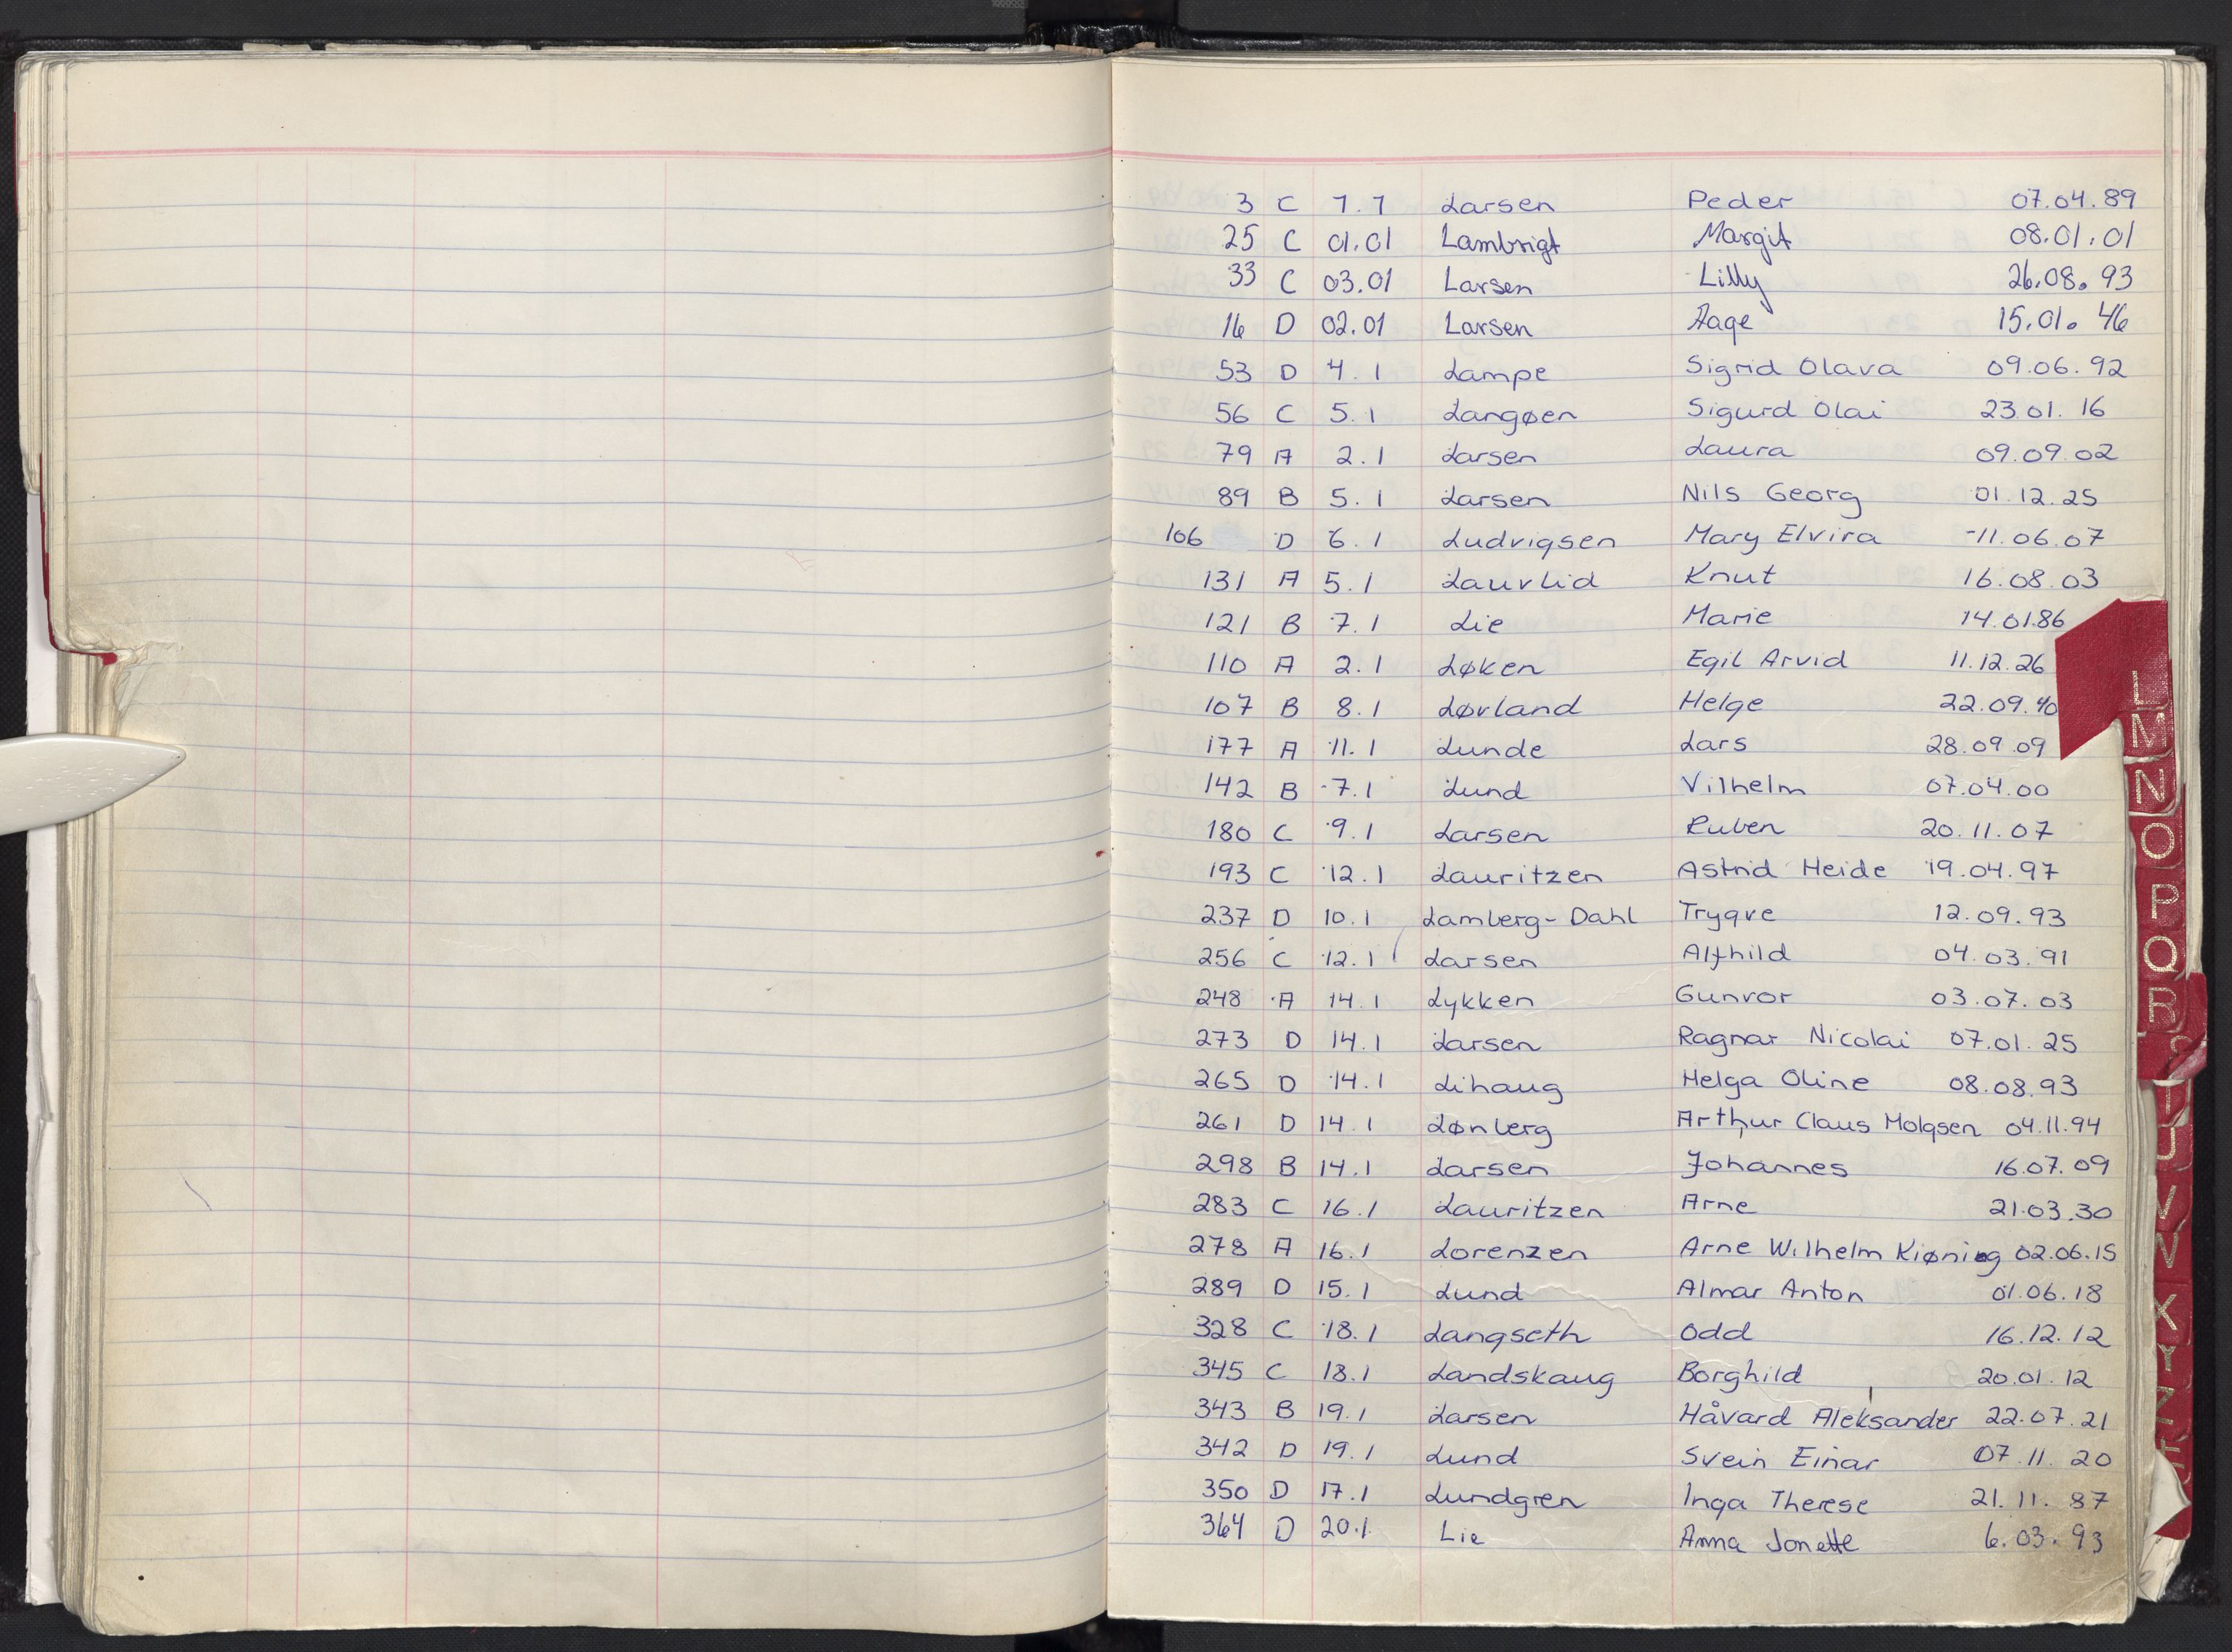 3 C 1.1 Larsen Peder 07.04.89
25 C 01.01 Lambrigt Margit 08.01.01
33 C 03.01 Larsen Lilly 26.08.93
16 D 02.01 Larsen Aage 15.01.46
53 D 4.1 Lampe Sigrid Olava 09.06.92
56 C 5.1 Langøen Sigurd Olai 23.01.16
79 A 2.1 Larsen Laura 09.09.02
89 B 5.1 Larsen Nils Georg 01.12.25
106 D 6.1 Ludvigsen Mary Elvira 11.06.07
131 A 5.1 Lauvlid Knut 16.08.03
121 B 7.1 Lie Marie 14.01.86
110 A 2.1 Løken Egil Arvid 11.12.26
107 B 8.1 Lørland Helge 22.09.40
177 A 11.1 Lunde Lars 28.09.09
142 B 7.1 Lund Vilhelm 07.04.00
180 C 9.1 Larsen Ruben 20.11.07
193 C 12.1 Lauritzen Astrid Heide 19.04.97
237 D 10.1 Lamberg-Dahl Trygve 12.09.93
256 C 12.1 Larsen Alfhild 04.03.91
248 A 14.1 Lykken Gunvor 03.07.03
273 D 14.1 Larsen Ragnar Nicolai 07.01.25
265 D 14.1 Lihaug Helga Oline 08.08.93
261 D 14.1 Lønberg Arthur Claus Molgsen 04.11.94
298 B 14.1 Larsen Johannes 16.07.09
283 C 16.1 Lauritzen Arne 21.03.30
278 A 16.1 Lorenzen Arne Wilhelm Kiønig 02.06.15
289 D 15.1 Lund Almar Anton 01.06.18
328 C 18.1 Langseth Odd 16.12.12
345 C 18.1 Landskaug Borghild 20.01.12
343 B 19.1 Larsen Håvard Aleksander 22.07.21
342 D 19.1 Lund Svein Einar 07.11.20
350 D 17.1 Lundgren Inga Therese 21.11.87
364 D 20.1 Lie Anna Jonette 6.03.93
L
M
N
O
P
Q
R
U
V
X
Y